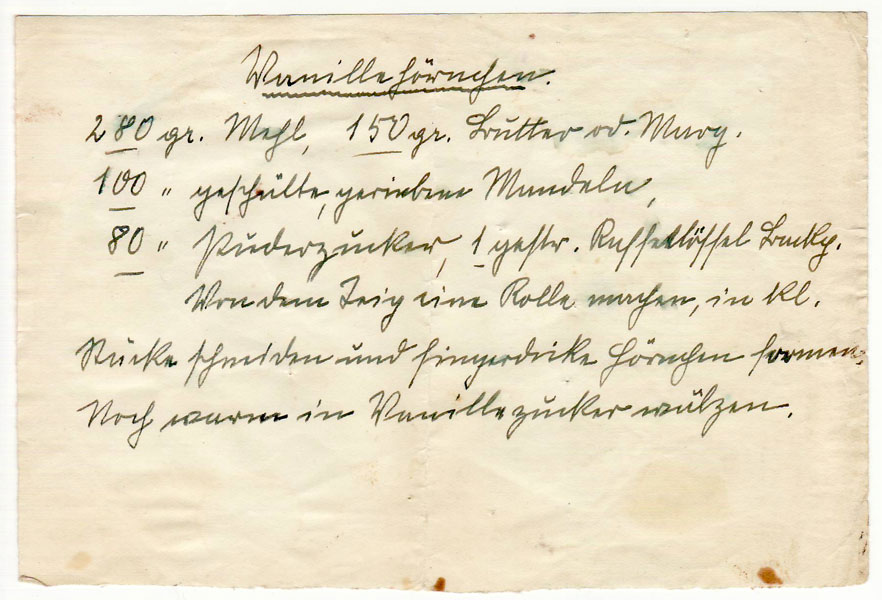 Vanillehörnchen.
280 gr. Mehl, 150 gr. Butter od. Marg.
100 " geschälte, geriebene Mandeln,
80 " Puderzucker, 1 gestr. Kaffeelöffel Backp.
Von dem Teig eine Rolle machen, in kl.
Stücke schneiden und fingerdicke Hörnchen formen.
Noch warm in Vanillezucker wälzen.